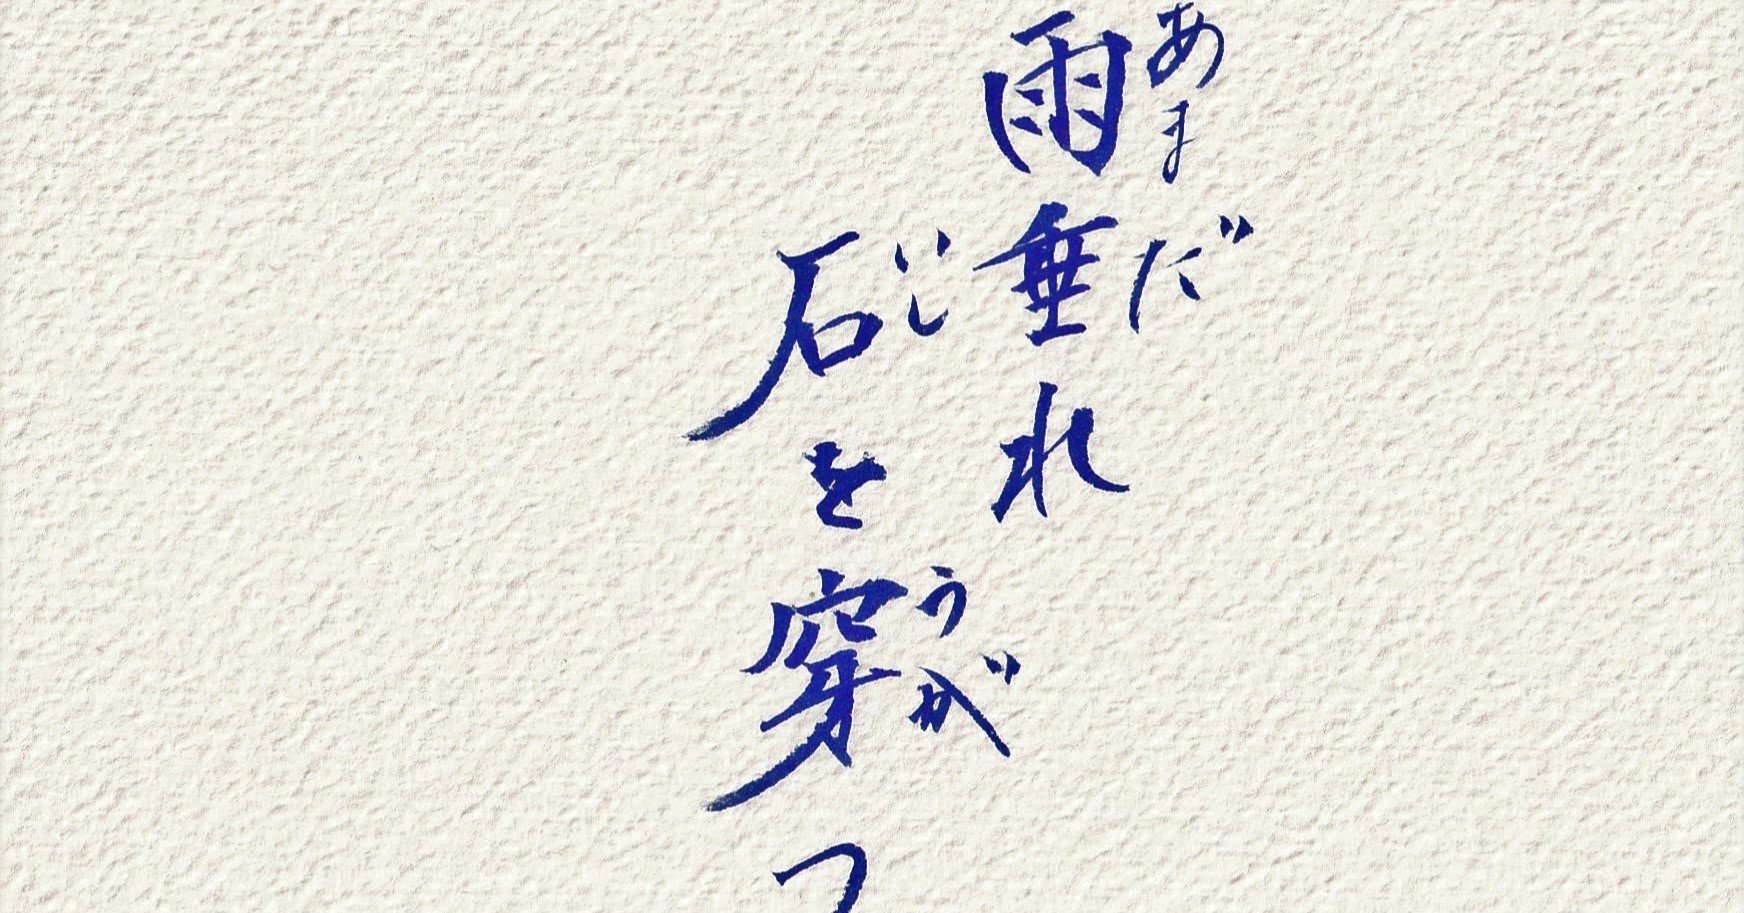 雨垂れ
あまだ
石を穿つ
いし
うが